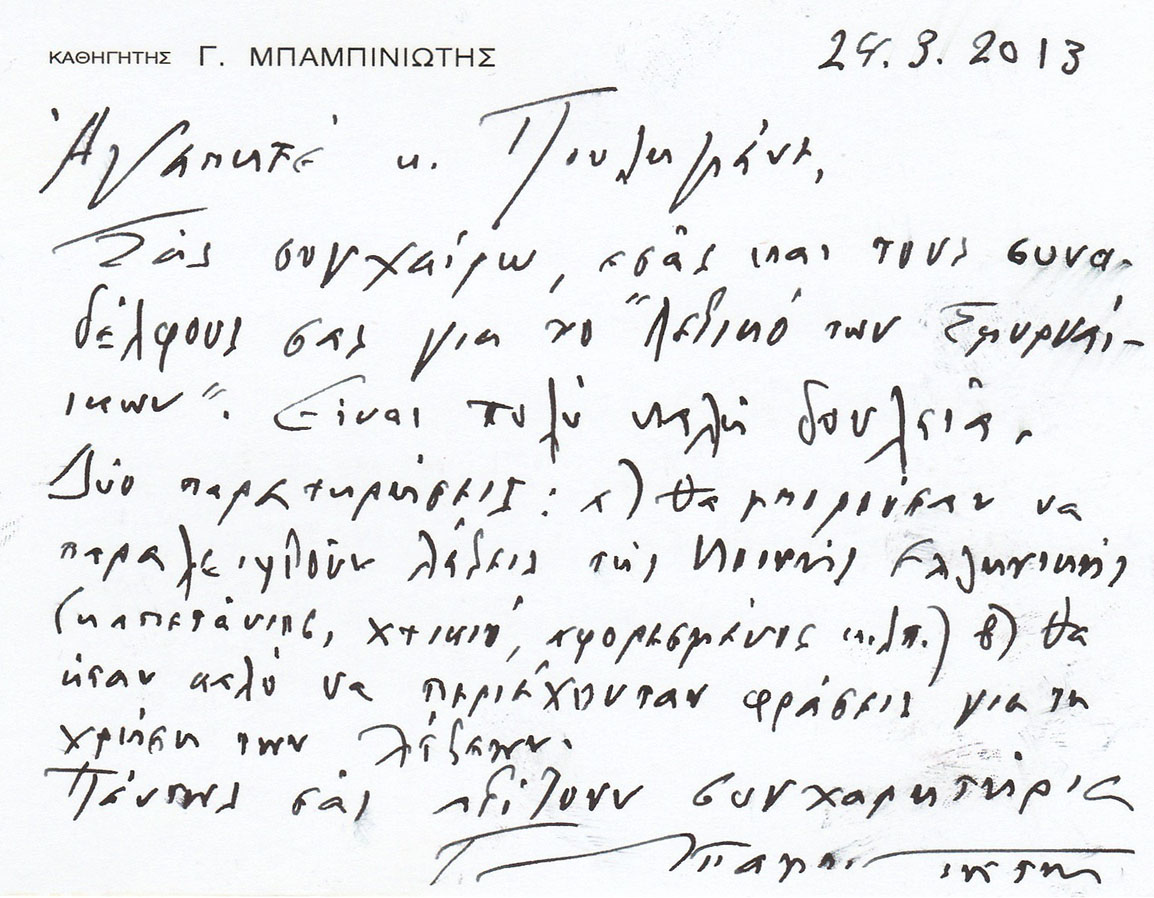 ΚΑΘΗΓΗΤΗΣ Γ. ΜΠΑΜΠΙΝΙΩΤΗΣ
24.3.2013
Ἀγαπητέ κ.
Σᾶς συγχαίρω, ἐσᾶς καί τούς συνα-
δέλφους σας γιά τό "Λεξικό τῶν Σμυρναί-
ικων". Εἶναι πολύ καλή δουλειά.
Δύο παρατηρήσεις: α) θά μποροῦσαν νά
παραλειφθοῦν λέξεις τῆς Κοινῆς Ἑλληνικῆς
(καπετάνιος, χτικιό, ἀφορεσμένος κ.λπ.) β) θά
ἦταν καλό νά περιέχονταν φράσεις γιά τή
χρήση τῶν λέξεων.
Πάντως σᾶς ἀξίζουν συγχαρητήρια
Γ. Μπαμπινιώτης